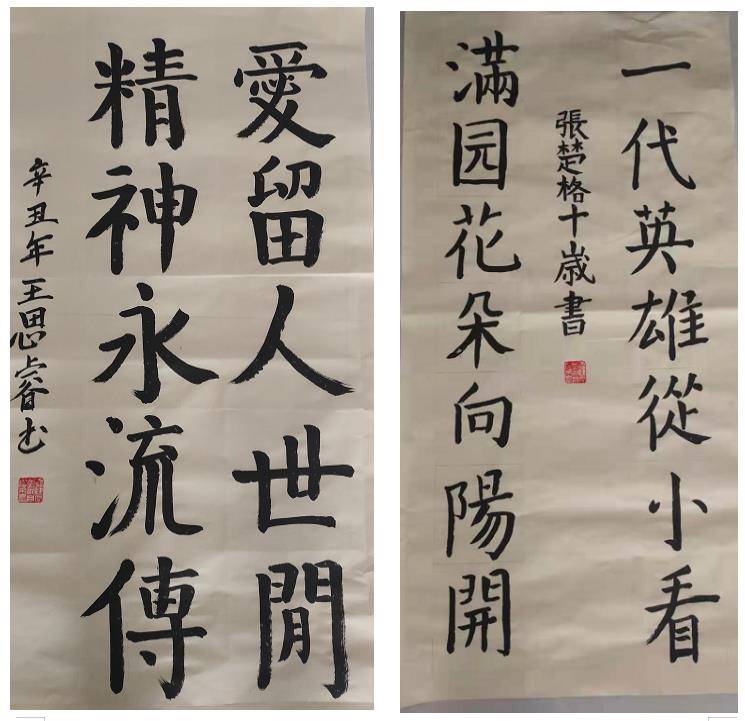 愛留人世閒
精神永流傳
辛丑年王思睿书
一代英雄從小看
張楚格十歲書
滿园花朵向陽開